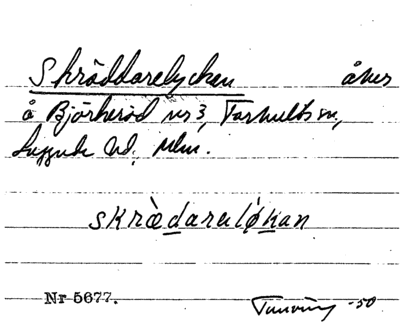 Skräddarelycken åker
å Björkeröd nr 3, Farhults sn,
Luggude hd, Mlm.
skrædareløkan
Nr 5677.
-50